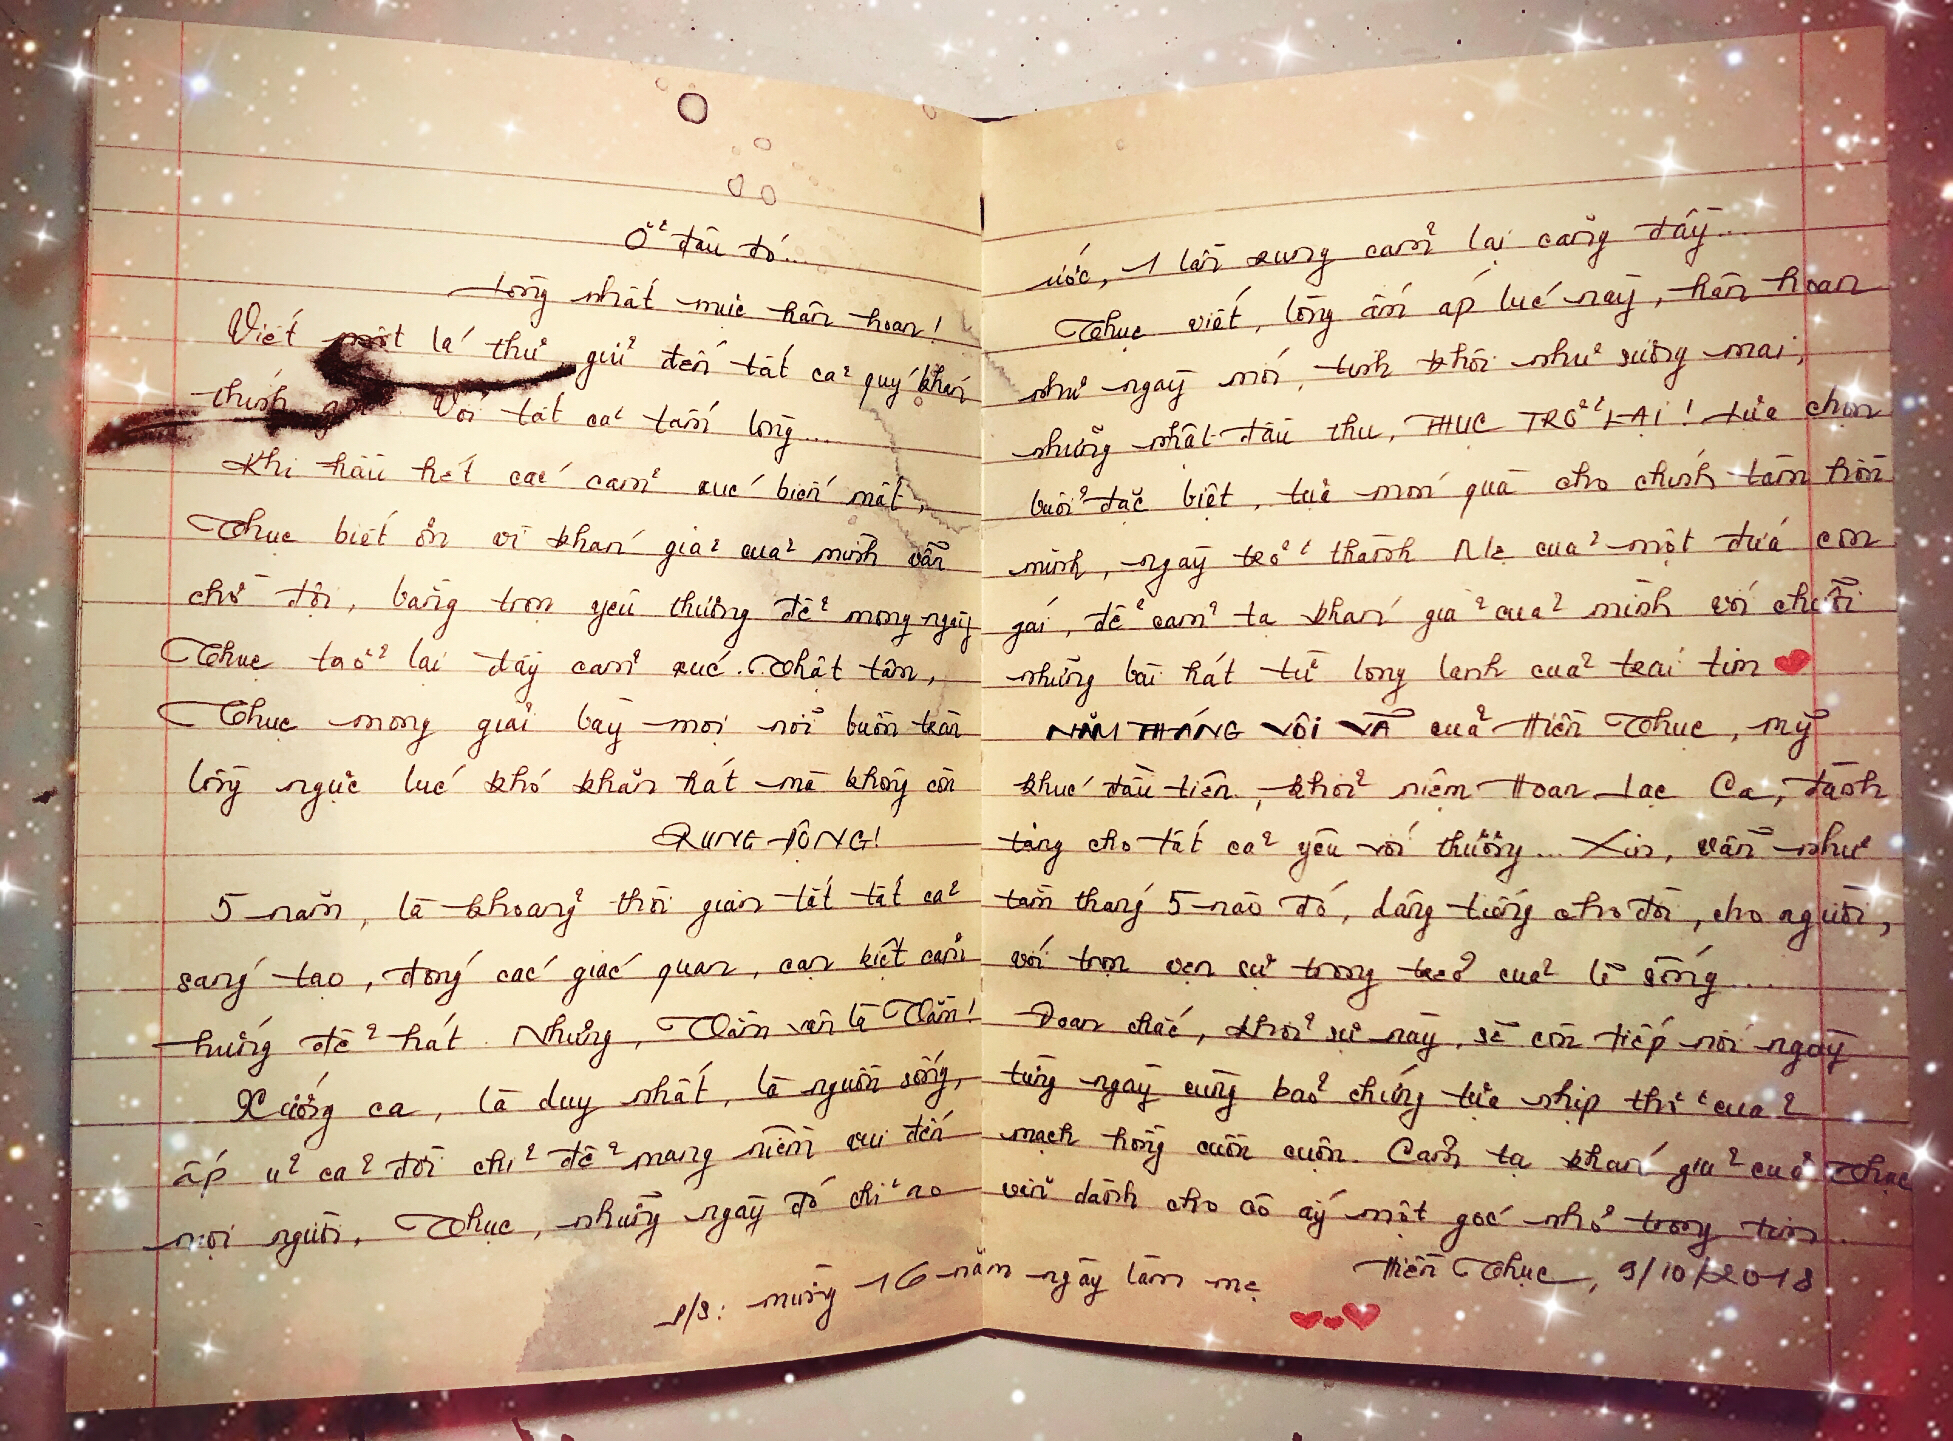 Ở đâu đó...
lòng nhất mực hân hoan!
Viết một lá thư gửi đến tất cả quý khán
thính giả. Với tất cả tấm lòng...
Khi hầu hết các cảm xúc biến mất,
Thục biết ơn vì khán giả của mình vẫn
chờ đợi, bằng trọn yêu thương để mong ngày
Thục trở lại đầy cảm xúc. Thật tâm,
Thục mong giải bày mọi nỗi buồn tràn
lồng ngực lúc khó khăn hát mà không còn
RUNG ĐỘNG!
5 năm, là khoảng thời gian tắt tất cả
sáng tạo, đóng các giác quan, cạn kiệt cảm
hứng để hát. Nhưng, Tằm vẫn là Tằm!
Xướng ca, là duy nhất, là nguồn sống,
ấp ủ cả đời chỉ để mang niềm vui đến
mọi người. Thục, những ngày đó chỉ ao
ước, 1 lần rung cảm lại căng đầy...
Thục viết, lòng ấm áp lúc này, hân hoan
như ngày mới, tinh khôi như sương mai,
những nhật đầu thu, THỤC TRỞ LẠI! Lựa chọn
buổi đặc biệt, tựa món quà cho chính tâm hồn
mình, ngày trở thành Mẹ của một đứa con
gái, để cảm tạ khán giả của mình với chuỗi
những bài hát từ long lanh của trái tim
NĂM THÁNG VỘI VÃ của Hiền Thục, mỹ
khúc đầu tiên, khởi niệm Hoan Lạc Ca, dành
tặng cho tất cả yêu với thương... Xin, vẫn như
tằm tháng 5 nào đó, dâng tiếng cho đời, cho người,
với trọn vẹn sự trong trẻo của lẽ sống....
Đoan chắc, khởi sự này, sẽ còn tiếp nối ngày
từng ngày cùng bao chứng tựa nhịp thở của
mạch hồng cuồn cuộn. Cảm tạ khán giả của Thục
vẫn dành cho cô ấy một góc nhỏ trong tim.
Hiền Thục, 9/10/2018
P/S: mừng 16 năm ngày làm mẹ